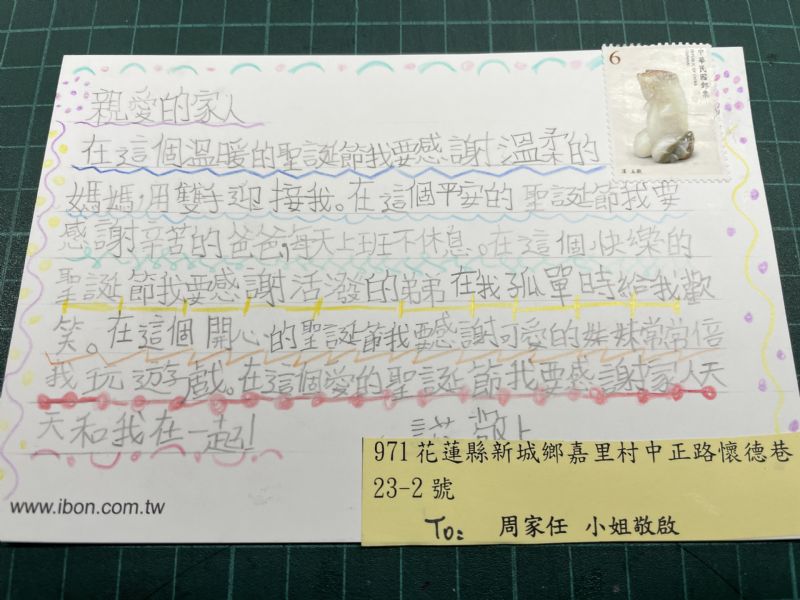 親愛的家人
在這個溫暖的聖誕節我要感謝溫柔的
媽媽,用雙手迎接我。在這個平安的聖誕節我要
感謝辛苦的爸爸,每天上班不休息。在這個快樂的
聖誕節我要感謝活潑的弟弟在我孤單時給我歡
笑。在這個開心的聖誕節我要感謝可愛的妹妹常常倍
我玩遊戲。在這個愛的聖誕節我要感謝家人天
天和我在一起!
敬上
6
中華民國郵票
www.ibon.com.tw
971花蓮縣新城鄉嘉里村中正路懷德巷
23-2號
To: 周家任 小姐敬啟